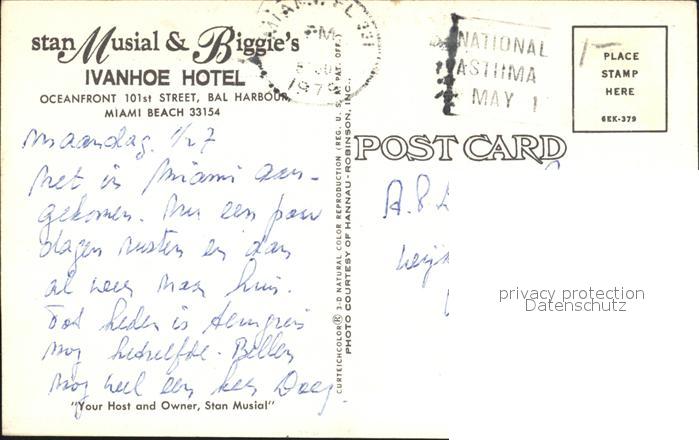 stan Musial & Biggie's
IVANHOE HOTEL
OCEANFRONT 101st STREET, BAL HARBOUR,
MIAMI BEACH 33154
MIAMI, FL 331
PM
197
NATIONAL
ASTHMA
MAY 1
PLACE
STAMP
HERE
6EK-379
POST CARD
CURTEICHCOLOR® 3-D NATURAL COLOR REPRODUCTION (REG. U. S. A. PAT. OFF.)
PHOTO COURTESY OF HANNAU-ROBINSON, INC.
maandag
Net in Miami aan-
gekomen. Nu een paar
dagen rusten en dan
al weer naar huis.
Tot heden is
nog hetzelfde. Bellen
nog wel een keer Daag.
"Your Host and Owner, Stan Musial"
A. P.
privacy protection
Datenschutz